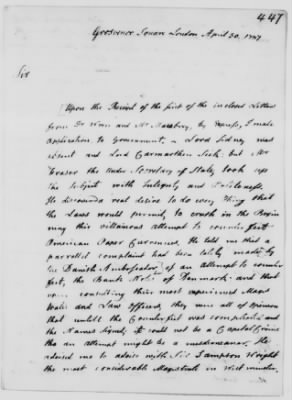 447
Grosvenor Square London April 30. 1787
Sir
Upon the Receipt of the first of the inclosed Letters
from Dr and Mr by Express, I made
application to Government, Lord Sidney was
absent and Lord Carmarthen Sick. but Mr
Frazer the Under Secretary of State, took up
the Subject with Integrity and Politeness.
He discovered a real desire to do every Thing that
the Laws would permit, to crush in the Begin
ning this villainous attempt to counterfeit
American Paper Currencies. He told me that a
parallel complaint had been lately made by
the Danish Ambassador, of an attempt to counter
feit, the Bank Notes of Denmark: and that
upon consulting their most experienced Magis
trates and Law officers, they were all of opinion
that untill the Counterfeit was compleated and
the Names signed, it could not be a Capital Crime
tho an attempt might be a misdemeanor.
He advised me to advise with Sir Sampson Wright
the most considerable Magistrate in Westminster.